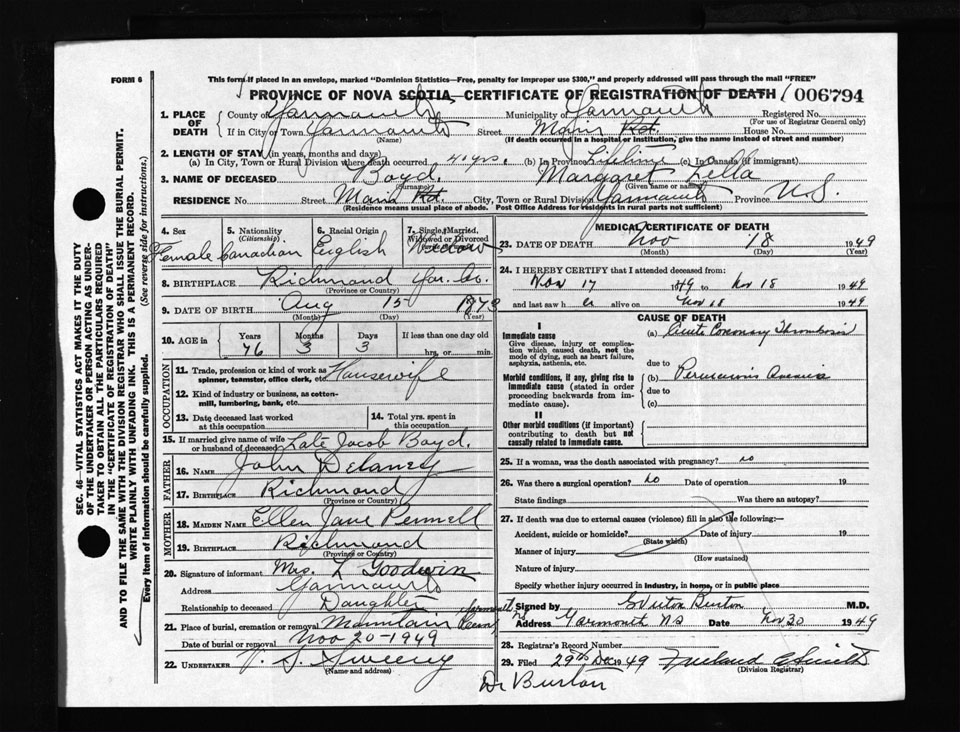 FORM 6
This form if placed in an envelope, marked "Dominion Statistics—Free, penalty for improper use $300," and properly addressed will pass through the mail "FREE"
PROVINCE OF NOVA SCOTIA—CERTIFICATE OF REGISTRATION OF DEATH 006794
1. PLACE OF DEATH County of Yarmouth Municipality of Yarmouth Registered No.
(For use of Registrar General only)
If in City or Town Yarmouth Street Main Rd. House No.
(Name) (If death occurred in a hospital or institution, give the name instead of street and number)
2. LENGTH OF STAY (in years, months and days)
(a) In City, Town or Rural Division where death occurred 41 yrs. (b) In Province Lifetime (c) In Canada (if immigrant)
3. NAME OF DECEASED Boyd. Margaret Zella
(Surname) (Given name or names)
RESIDENCE No. Street Main Rd. City, Town or Rural Division Yarmouth Province N.S.
(Residence means usual place of abode. Post Office Address for residents in rural parts not sufficient)
4. Sex 5. Nationality (Citizenship) 6. Racial Origin 7. Single, Married, Widowed or Divorced
Female Canadian English Widow
8. BIRTHPLACE Richmond Yar. Co.
(Province or Country)
9. DATE OF BIRTH Aug 15 1873
(Month) (Day) (Year)
10. AGE in Years Months Days If less than one day old
76 3 3 hrs. or min.
OCCUPATION
11. Trade, profession or kind of work as spinner, teamster, office clerk, etc. Housewife
12. Kind of industry or business, as cotton-mill, lumbering, bank, etc.
13. Date deceased last worked at this occupation 14. Total yrs. spent in this occupation
15. If married give name of wife or husband of deceased Late Jacob Boyd.
FATHER
16. NAME John Delaney
17. BIRTHPLACE Richmond
(Province or Country)
MOTHER
18. MAIDEN NAME Ellen Jane Pennell
19. BIRTHPLACE Richmond
(Province or Country)
20. Signature of informant Mrs. L Goodwin
Address Yarmouth
Relationship to deceased Daughter
21. Place of burial, cremation or removal Mountain Cem Yarmouth
Date of burial or removal Nov 20-1949
22. UNDERTAKER V. S. Sweeny
(Name and address)
MEDICAL CERTIFICATE OF DEATH
23. DATE OF DEATH Nov 18 1949
(Month) (Day) (Year)
24. I HEREBY CERTIFY that I attended deceased from:
Nov 17 1949 to Nov 18 1949
and last saw her alive on Nov 18 1949
CAUSE OF DEATH
I
Immediate cause (a) Acute Coronary Thrombosis
Give disease, injury or complication which caused death, not the mode of dying, such as heart failure, asphyxia, asthenia, etc.
due to
Morbid conditions, if any, giving rise to immediate cause (stated in order proceeding backwards from immediate cause). (b) Pernicious Anemia
due to
(c)
II
Other morbid conditions (if important) contributing to death but not causally related to immediate cause.
25. If a woman, was the death associated with pregnancy? no
26. Was there a surgical operation? no Date of operation 19
State findings Was there an autopsy?
27. If death was due to external causes (violence) fill in also the following:—
Accident, suicide or homicide? Date of injury 19
(State which)
Manner of injury
(How sustained)
Nature of injury
Specify whether injury occurred in industry, in home, or in public place
Signed by G Victor Burton M.D.
Address Yarmouth NS Date Nov 30 1949
28. Registrar's Record Number
29. Filed 29th Dec 1949 Freeland C Smith
(Division Registrar)
Dr Burton
SEC. 46—VITAL STATISTICS ACT MAKES IT THE DUTY
OF THE UNDERTAKER OR PERSON ACTING AS UNDER-
TAKER TO OBTAIN ALL THE PARTICULARS REQUIRED
IN THE "CERTIFICATE OF REGISTRATION OF DEATH"
AND TO FILE THE SAME WITH THE DIVISION REGISTRAR WHO SHALL ISSUE THE BURIAL PERMIT.
WRITE PLAINLY WITH UNFADING INK. THIS IS A PERMANENT RECORD.
Every item of Information should be carefully supplied. (See reverse side for instructions.)